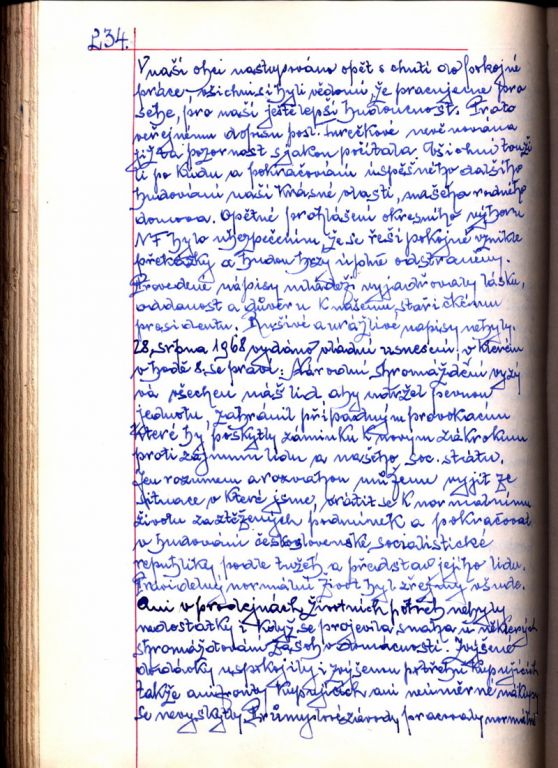 234.
V naší obci nastupováno opět s chutí do pokojné
práce, všichni si byli vědomi, že pracujeme pro
sebe, pro naší ještě lepší budoucnost. Proto
veřejnému dopisu posl. Turečkové nevěnována
již ta pozornost s jakou počítala. Všichni touži
li po klidu a pokračování úspěšného dalšího
budování naší krásné vlasti, našeho rodného
domova. Opětné prohlášení okresního výboru
NF bylo ubezpečením, že se řeší pokojně vzniklé
překážky a budou brzy úplně odstraněny.
Provedené nápisy mládeží vyjadřovaly lásku,
oddanost a důvěru k našemu, staříčkému
presidentu. Rušivé a urážlivé nápisy nebyly.
28. srpna 1968 vydáno vládní usnesení, v kterém
v bodě 8. se praví: Národní shromáždění vyzý
vá všechen náš lid, aby udržel pevnou
jednotu, zabránil případným provokacím
které by poskytly záminku k novým zákrokům
proti zájmům lidu a našeho soc. státu.
Jen rozumem a rozvahou můžeme vyjít ze
situace v které jsme, vrátit se k normálnímu
životu za ztěžených podmínek a pokračovat
v budování československé, socialistické
republiky podle tužeb a představ jejího lidu.
Pravidelný, normální život byl zřejmý všude.
Ani v prodejnách životních potřeb nebyly
nedostatky i když se projevila snaha u některých
shromažďování zásob v domácnosti. Zvýšené
dodávky uspokojily i zvýšenou potřebu kupujících
takže ani fronty kupujících, ani neúměrné nákupy
se nevyskytly. Průmyslové závody pracovaly normálně